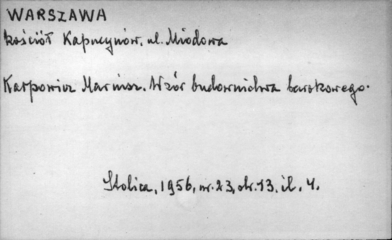 WARSZAWA
kościół Kapucynów, ul. Miodowa
Karpowicz Mariusz. Wzór budownictwa barokowego.
Stolica, 1956, nr. 23, str. 13, il. 4.